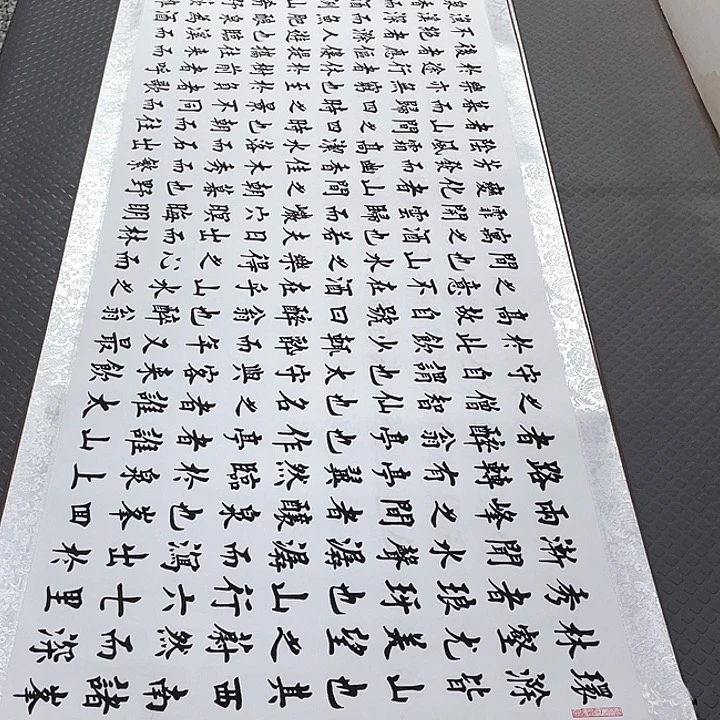 環滁皆山也其西南諸峯
林壑尤美望之蔚然而深
秀者琅玡也山行六七里
漸聞水聲潺潺而瀉出於
兩峰之間者釀泉也峯回
路轉有亭翼然臨於泉上
者醉翁亭也作亭者誰山
之僧智仙也名之者誰太
守自謂也太守與客來飲
於此飲少輒醉而年又最
高故自號曰醉翁也醉翁
之意不在酒在乎山水之
間也山水之樂得之心而
寓之酒也若夫日出而林
霏開雲歸而巖穴暝晦明
變化者山間之朝暮也野
芳發而幽香佳木秀而繁
陰風霜高潔水落而石出
者山間之四時也朝而往
暮而歸四時之景不同而
樂亦無窮也至於負者歌
於途行者休於樹前者呼
後者應傴僂提攜往來而
不絕者滁人遊也臨溪而